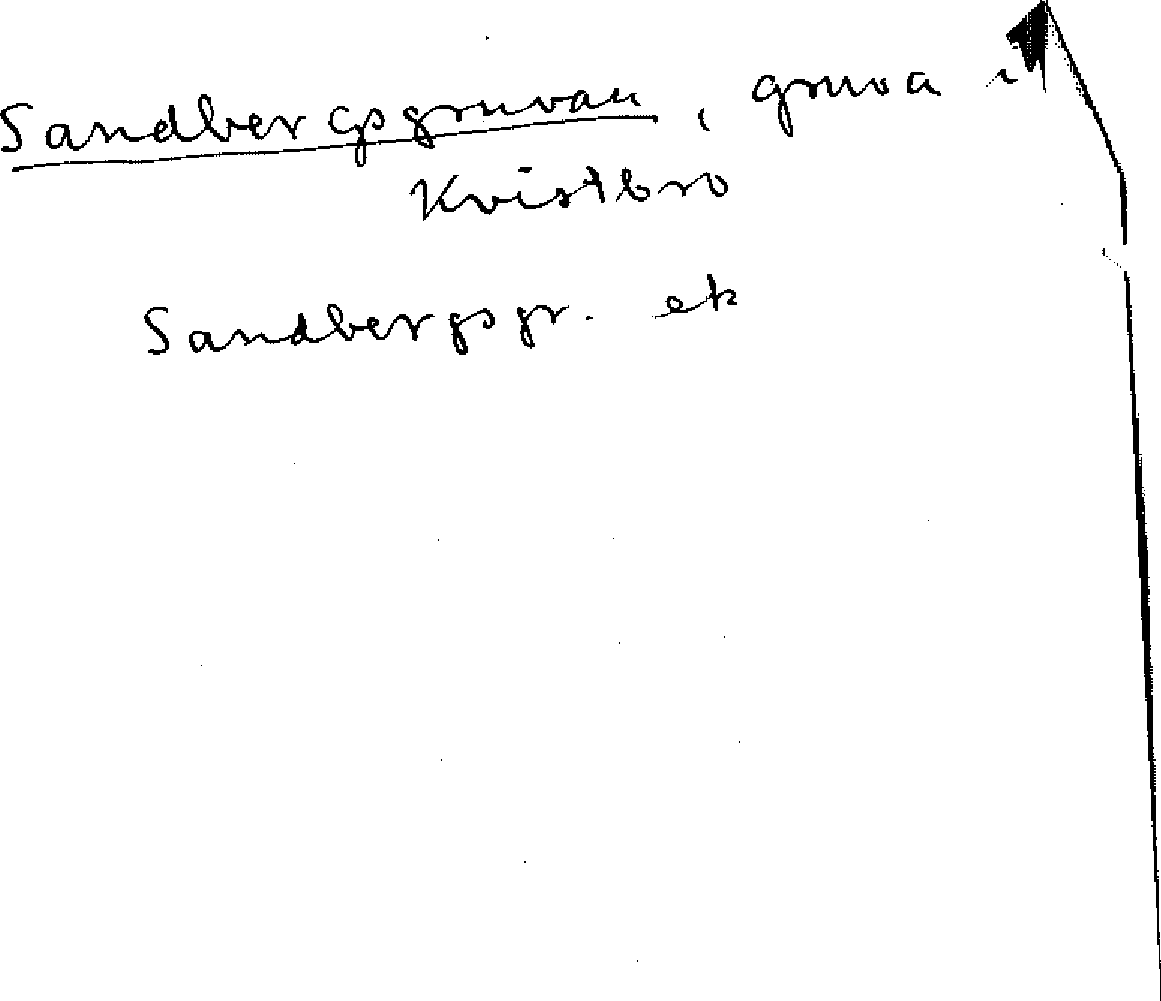 Sandbergsgruvan, gruva i
Kvistbro
Sandbergsgr. ek